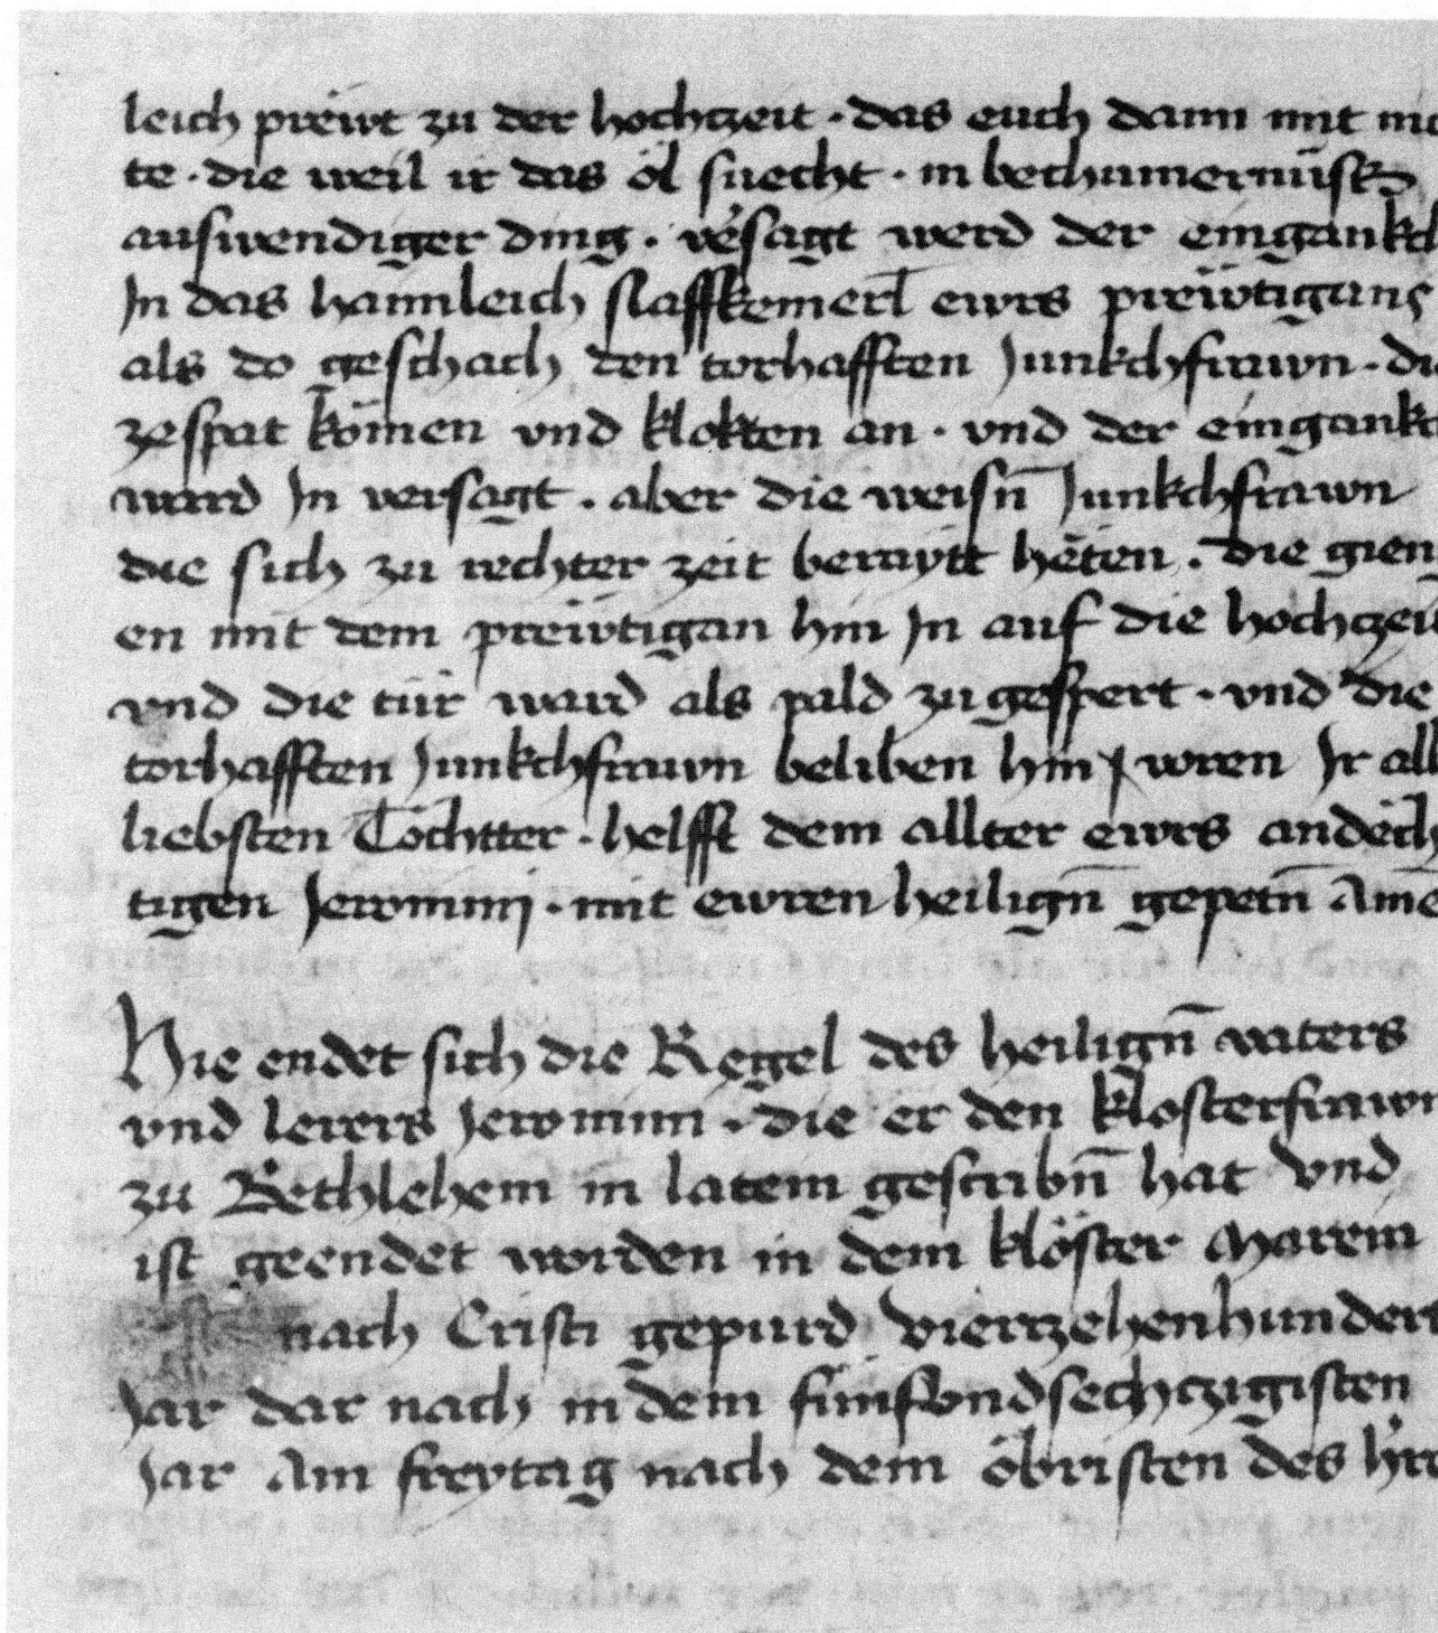 leich prëwt zu der hochczeit · das euch dann mit mo
te · die weil ir das öl suecht · in bechumernüsß
auswendiger ding · vẻsagt werd der eingankch
In das haimleich slaffkemerl ewrs prëwtigans
als do geschach den torhafften Junkchfrawn · die
ze spat kömen vnd klokten an · vnd der eingankch
ward In versagt · aber die weisn̄ Junkchfrawn
die sich zu rechter zeit beraytt hëten · die gieng
en mit dem prëwtigan hin In auf die hochczeit
vnd die tür ward als pald zu gespert · vnd die
torhafften Junkchfrawn beliben hin voren Ir all
liebsten Töchtter · helfft dem allter ewrs andëch
tigen Jeronimj · mit ewren heilign̄ gepetn̄ Amē
Hie endet sich die Regel des heilign̄ vaters
vnd lerers Jeronimi · die er den klosterfrawn
zu Bethlehem in latein gescribn̄ hat Vnd
ist geendet worden in dem klöster Marein
nach Cristi gepurd vierczehenhundert
Jar dar nach in dem fünfvndsechczigisten
Jar Am freytag nach dem öbristen des